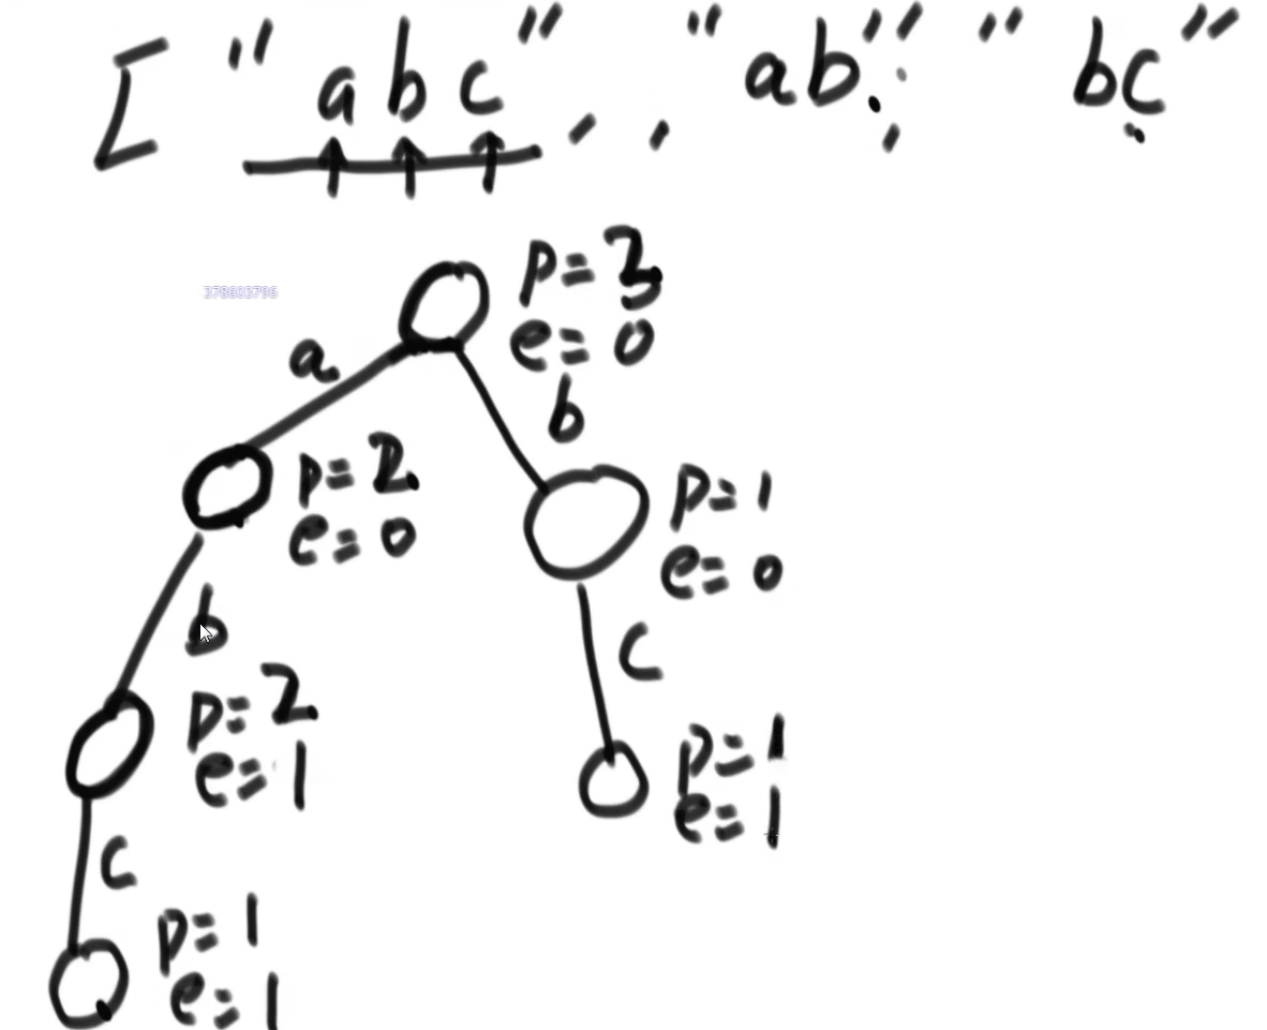 [ "abc", , "ab", "bc"
p=3
e=0
378603796
a
b
p=2
e=0
p=1
e=0
b
c
p=2
e=1
p=1
e=1
c
p=1
e=1